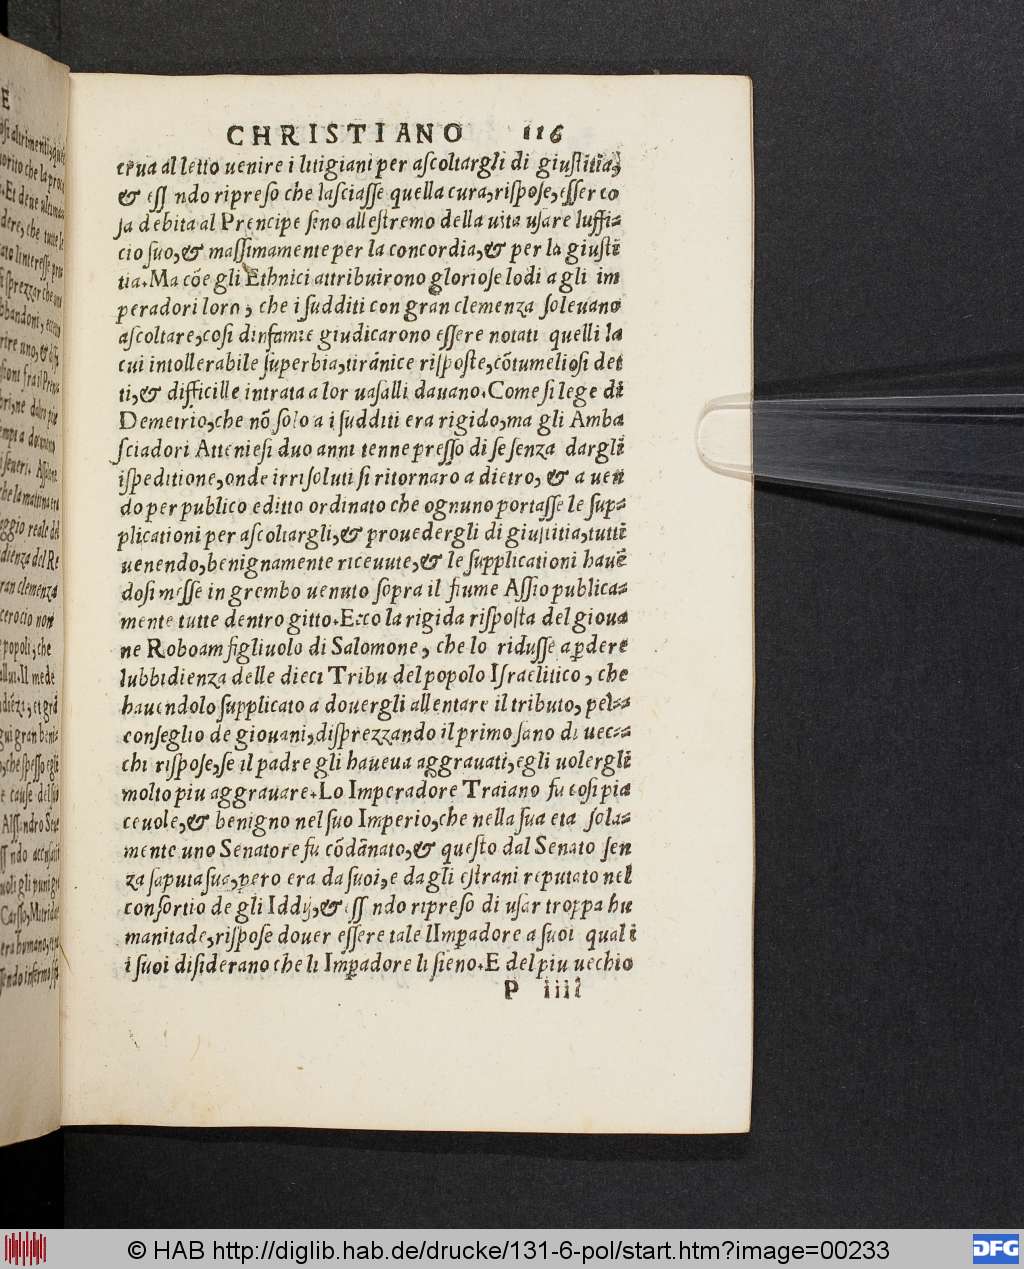 E
CHRISTIANO 116
ceua al letto uenire i litigiani per aſcoltargli di giuſtitia,
& eſſ ndo ripreſo che laſciaſſe quella cura, riſpoſe, eſſer co
ſa debita al Prencipe ſino alleſtremo della uita uſare luffi-
cio ſuo, & maſſimamente per la concordia, & per la giuſtī
tia. Ma cōe gli Ethnici attribuirono glorioſe lodi a gli im
peradori loro, che i ſudditi con gran clemenza ſoleuano
aſcoltare, coſi dinfamie giudicarono eſſere notati quelli la
cui intollerabile ſuperbia, tirānice riſpoſte, cōtumelioſi det
ti, & difficille intrata a lor uaſalli dauano. Come ſi lege di
Demetrio, che nō ſolo a i ſudditi era rigido, ma gli Amba
ſciadori Attenieſi duo anni tenne preſſo di ſe ſenza dargli
iſpeditione, onde irriſoluti ſi ritornaro a dietro, & a uen
do per publico editto ordinato che ognuno portaſſe le ſup-
plicationi per aſcoltargli, & prouedergli di giuſtitia, tutti
uenendo, benignamente riceuute, & le ſupplicationi hauē
doſi meſſe in grembo uenuto ſopra il fiume Aſſio publica-
mente tutte dentro gitto. Ecco la rigida riſpoſta del gioua
ne Roboam figliuolo di Salomone, che lo riduſſe a ꝑdere
lubbidienza delle dieci Tribu del popolo Iſraelitico, che
hauendolo ſupplicato a douergli allentare il tributo, pel-
conſeglio de giouani, diſprezzando il primo ſano di uec-
chi riſpoſe, ſe il padre gli haueua aggrauati, egli uolergli
molto piu aggrauare. Lo Imperadore Traiano fu coſi pia
ceuole, & benigno nel ſuo Imperio, che nella ſua eta ſola-
mente uno Senatore fu cōdānato, & queſto dal Senato ſen
za ſaputa ſua, pero era da ſuoi, e da gli eſtrani reputato nel
conſortio de gli Iddij, & eſſ ndo ripreſo di uſar troppa hu
manitade, riſpoſe douer eſſere tale lImꝑadore a ſuoi quali
i ſuoi diſiderano che li Imꝑadore li ſieno. E del piu uechio
P iiii
© HAB http://diglib.hab.de/drucke/131-6-pol/start.htm?image=00233
DFG